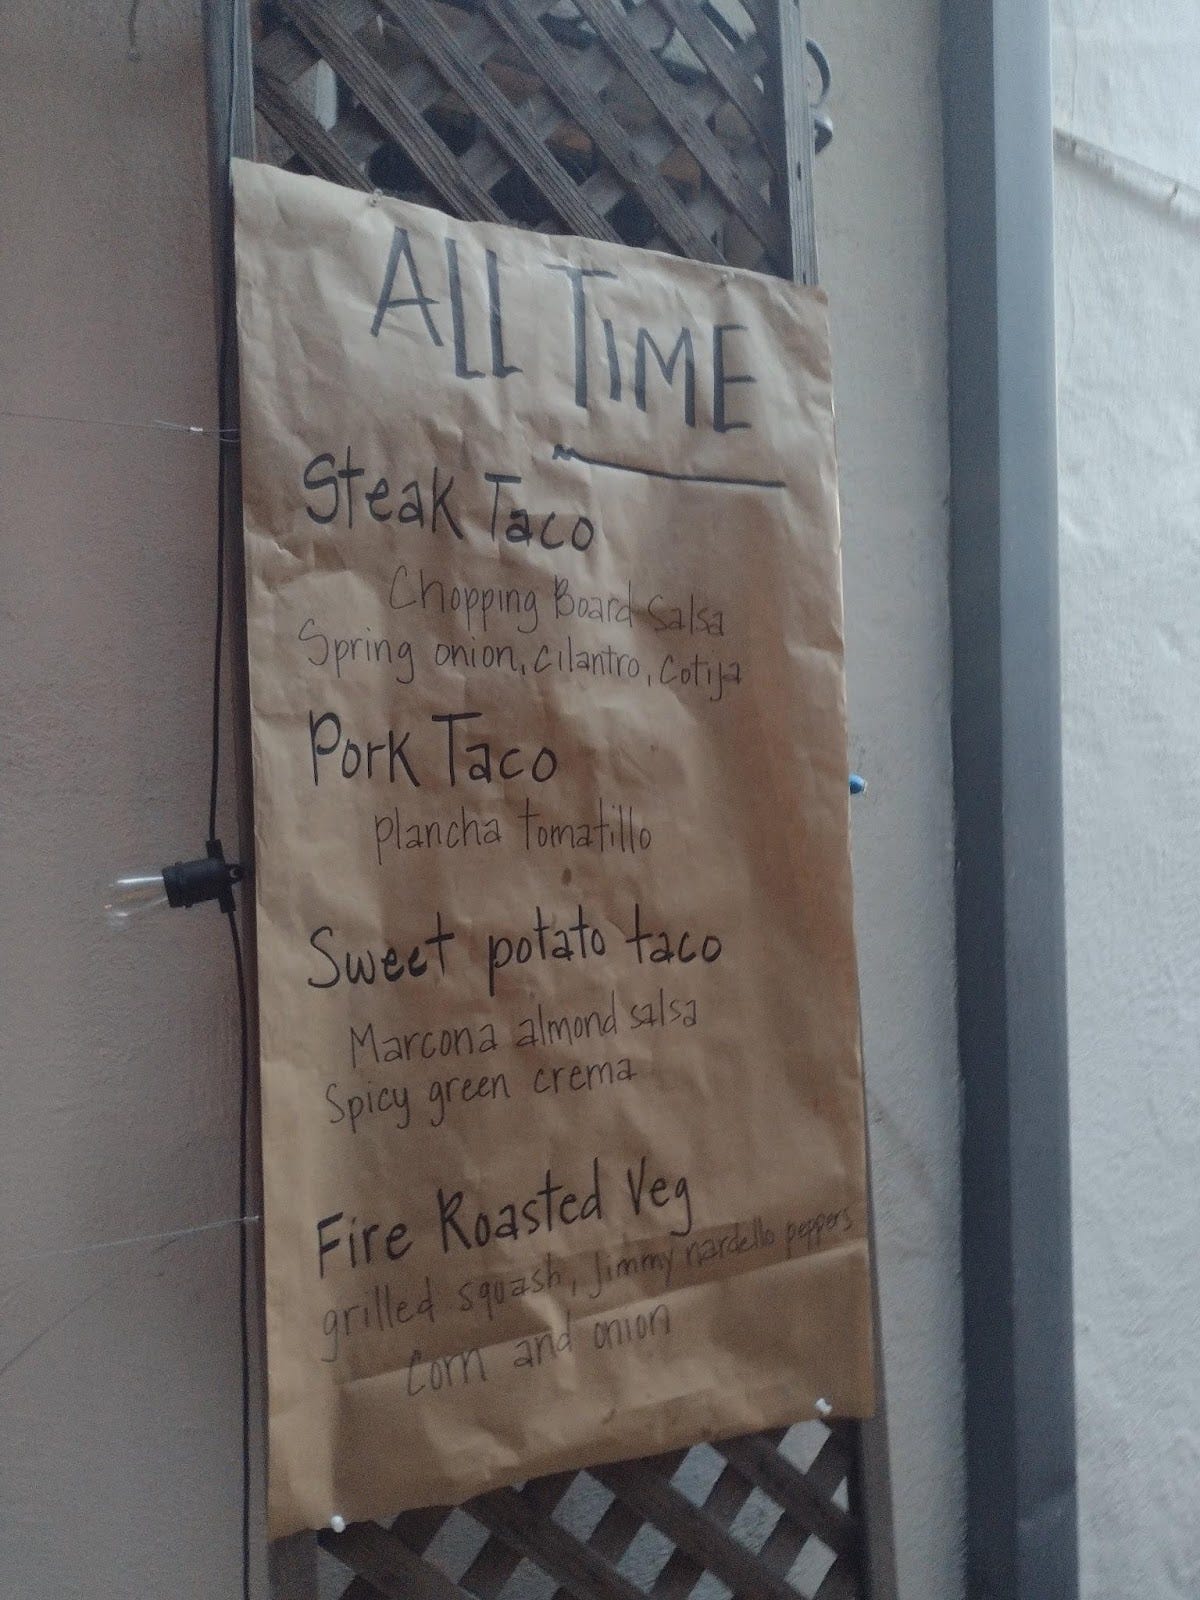 ALL TIME
Steak Taco
Chopping Board Salsa
Spring onion, cilantro, cotija
Pork Taco
plancha tomatillo
Sweet potato taco
Marcona almond salsa
Spicy green crema
Fire Roasted Veg
grilled squash, Jimmy nardello peppers
Corn and onion